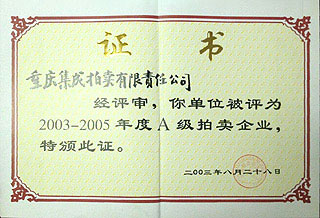 证书
重庆集成拍卖有限責任公司
经评审，你单位被评为
2003-2005年度A级拍卖企业，
特颁此证。
二00三年八月二十八日